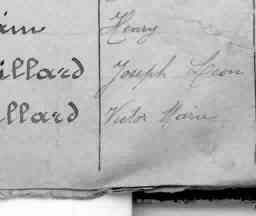 ain Henry
illard Joseph Leon
llard Victor Marie